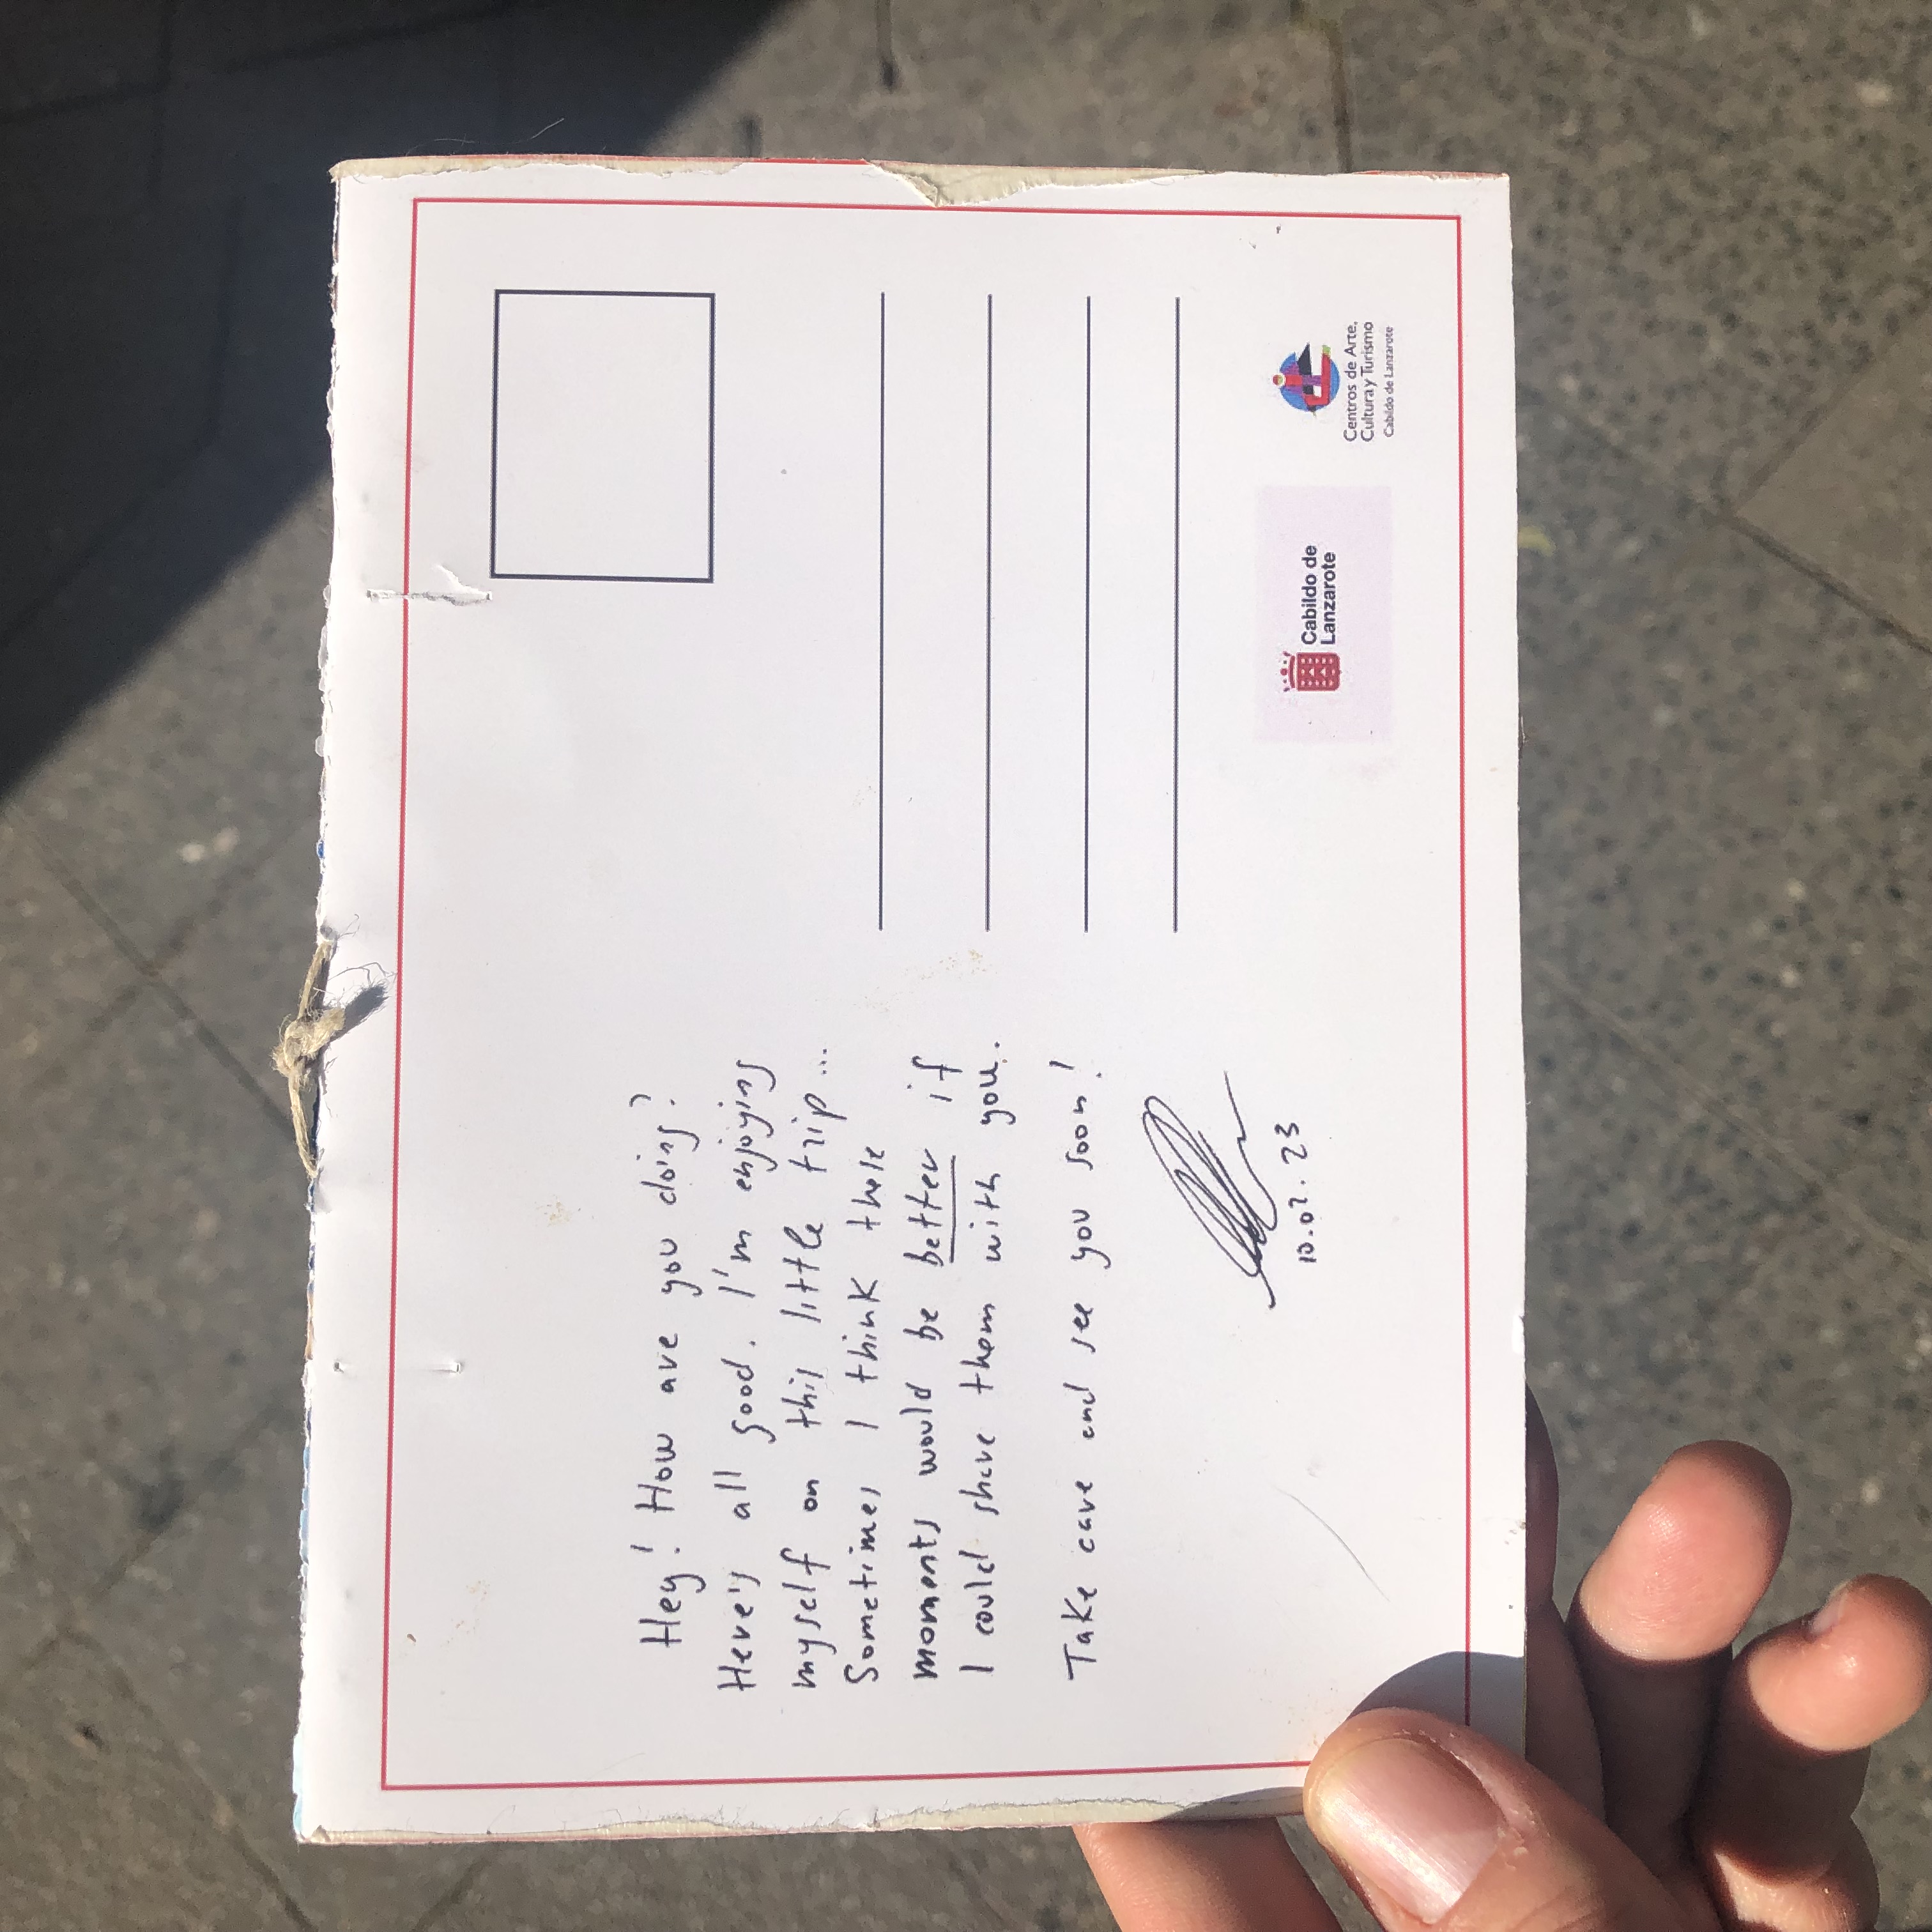 Hey! How are you doing?
Here's all good. I'm enjoying
myself on this little trip...
Sometimes I think these
moments would be better if
I could share them with you.
Take care and see you soon!
10.02.23
Cabildo de
Lanzarote
Centros de Arte,
Cultura y Turismo
Cabildo de Lanzarote